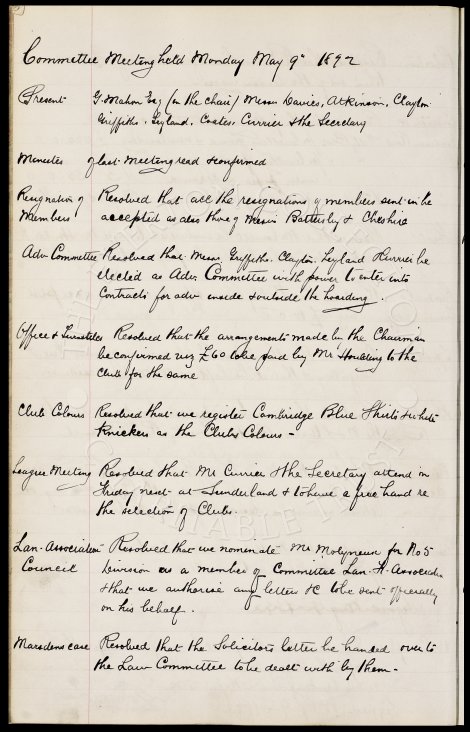 Committee Meeting held Monday May 9th 1892
Present G. Mahon Esq (in the chair) Messrs Davies, Atkinson, Clayton
Griffiths, Leyland, Coates, Currier & the Secretary
Minutes of last Meeting read & confirmed
Resignation of Resolved that all the resignations of members sent in be
Members accepted as also those of Messrs Battersby & Cheshire
Adv Committee Resolved that Messrs Griffiths, Clayton, Leyland & Currier be
elected as Adv. Committee with power to enter into
Contracts for adv inside & outside the hoarding.
Office & Turnstiles Resolved that the arrangements made by the Chairman
be confirmed viz £60 to be paid by Mr Houlding to the
Club for the same
Club Colours Resolved that we register Cambridge Blue Shirts & white
Knickers as the Clubs Colours -
League Meeting Resolved that Mr Currier & the Secretary attend on
Friday next at Sunderland & to have a free hand re
the selection of Clubs.
Lan. Association Resolved that we nominate Mr Molyneux for No 5
Council Division as a member of Committee Lan. F. Association
& that we authorise any letters &c to be sent officially
on his behalf.
Marsdens case Resolved that the Solicitors letter be handed over to
the Law Committee to be dealt with by them -